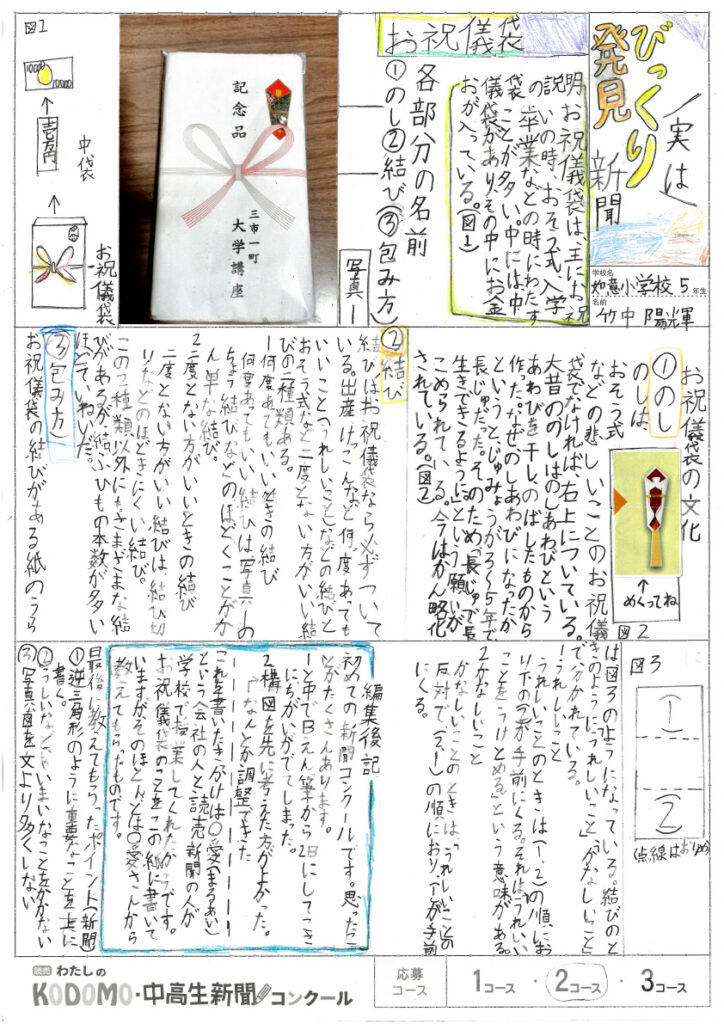 実は
びっくり
発見
新聞
学校名
如意小学校 5年生
名前
竹中 陽輝
お祝儀袋
説明 お祝儀袋は、主にお祝
いの時、おそう式、入学
卒業などの時にわたす
ことが多い。中には中
袋があり、その中にお金
が入っている。(図1)
各部分の名前
①のし②結び③包み方
写真1
記念品
三市一町
大学講座
図1
10000
10000
中袋
壱万円
お祝儀袋
お祝儀袋の文化
①のし
のしは、
おそう式
などの悲しいことのお祝儀
袋でなければ、右上についている。
大昔ののしはのしあわびという
あわびを干し、のばしたものから
作った。なぜのしあわびになったか
というと、じゅみょうがう6〜5年で
長じゅだった。そのため「長じゅで長
生きできるように」という願いが
こめられている。今はかん略化
されている。(図2)
めくってね
図2
②結び
結びはお祝儀袋なら必ずついて
いる。出産、けっこんなど何度あっても
いいこと(うれしいこと)などの結びと
おそう式など二度とない方がいい結
びの二種類ある。
1何度あってもいいときの結び
何度あってもいい結びは写真1の
ちょう結びなどのほどくことがか
ん単な結び。
2二度とない方がいいときの結び
二度とない方がいい結びは、結び切
りなどのほどきにくい結び。
この2種類以外にもさまざまな結
びがあるが、結ぶひもの本数が多い
ほどていねいだ。
③包み方
お祝儀袋の結びがある紙のうら
図3
(点線はおりめ)
は図3のようになっている。結びのと
きのように「うれしいこと」「かなしいこと」
で分かれている。
1うれしいこと
うれしいことのときは(1、2)の順にお
り、下の紙が手前にくる。それは「うれしい
ことをうけとめる」という意味がある。
2かなしいこと
かなしいことのときは、「うれしいこと」の
反対で(2、1)の順におり、1が手前
にくる。
編集後記
初めての新聞コンクールです。思ったこ
とがたくさんあります。
1と中でBえん筆から2Bにしてこさ
にちがいがでてしまった。
2構図を先に考えた方がよかった。
なんとか調整できた
これを書いたきっかけは〇愛(まるあい)
という会社の人と読売新聞の人が
学校で授業してくれたからです。
お祝儀袋のことをこの紙に書いて
いますが、そのほとんどは〇愛さんから
教えてもらったものです。
最後に教えてもらったポイント(新聞)
①逆三角形のように重要なことを上に
書く。
②うれしいなどあいまいなことをかかない
③写真、図を文より多くしない
読売 わたしの
KODOMO・中高生新聞コンクール
応募コース
1コース・2コース・3コース